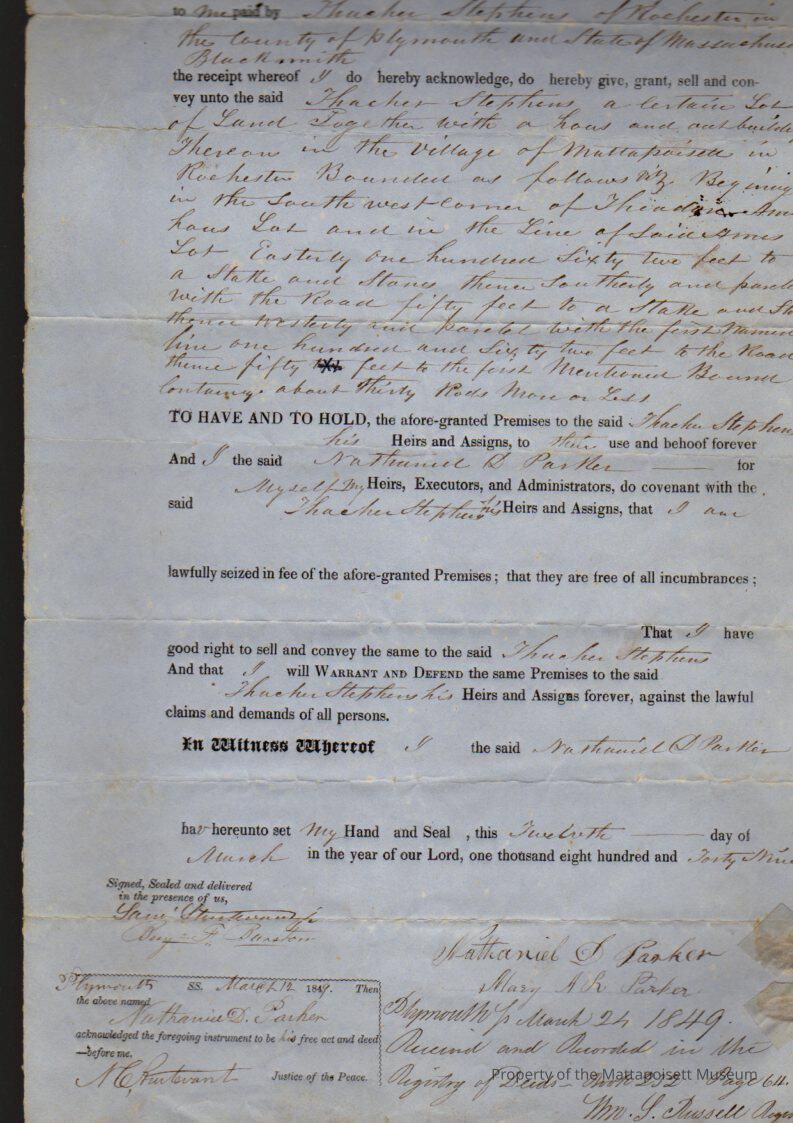 to me paid by Thacher Stephens of Rochester in
the County of Plymouth and State of Massachuse
Blacksmith
the receipt whereof I do hereby acknowledge, do hereby give, grant, sell and con-
vey unto the said Thacher Stephens a certain Lot
of Land Together with a hous and outbuildi
Thereon in the Village of Mattapoisett in
Rochester Bounded as follows viz. Begining
in the South west corner of
hous Lot and in the Line of Said Ames
Lot Easterly one hundred Sixty two feet to
a Stake and Stones thence Southerly and parale
with the Road fifty feet to a Stake and St
thence westerly and paralel with the first Named
line one hundred and Sixty two feet to the Road
thence fifty feet to the first Mentioned Bound
Containg about Thirty Rods More or Less
TO HAVE AND TO HOLD, the afore-granted Premises to the said Thacher Stephens
his Heirs and Assigns, to their use and behoof forever
And I the said Nathaniel D Parker for
Myself My Heirs, Executors, and Administrators, do covenant with the
said Thacher Stephens his Heirs and Assigns, that I am
lawfully seized in fee of the afore-granted Premises; that they are free of all incumbrances;
That I have
good right to sell and convey the same to the said Thacher Stephens
And that I will WARRANT AND DEFEND the same Premises to the said
Thacher Stephens his Heirs and Assigns forever, against the lawful
claims and demands of all persons.
In Witness Whereof I the said Nathaniel D Parker
have hereunto set My Hand and Seal , this Twelveth day of
March in the year of our Lord, one thousand eight hundred and Forty Nine
Signed, Sealed and delivered
in the presence of us,
Benj. F. Barstow
Nathaniel D Parker
Mary A R Parker
Plymouth SS. March 12 1849. Then
the above named
Nathaniel D. Parker
acknowledged the foregoing instrument to be his free act and deed
—before me.
Justice of the Peace.
Plymouth ss March 24 1849.
Received and Recorded in the
Registry of Deeds Book 232 Page 64.
Wm. S. Russell Regr
Property of the Mattapoisett Museum